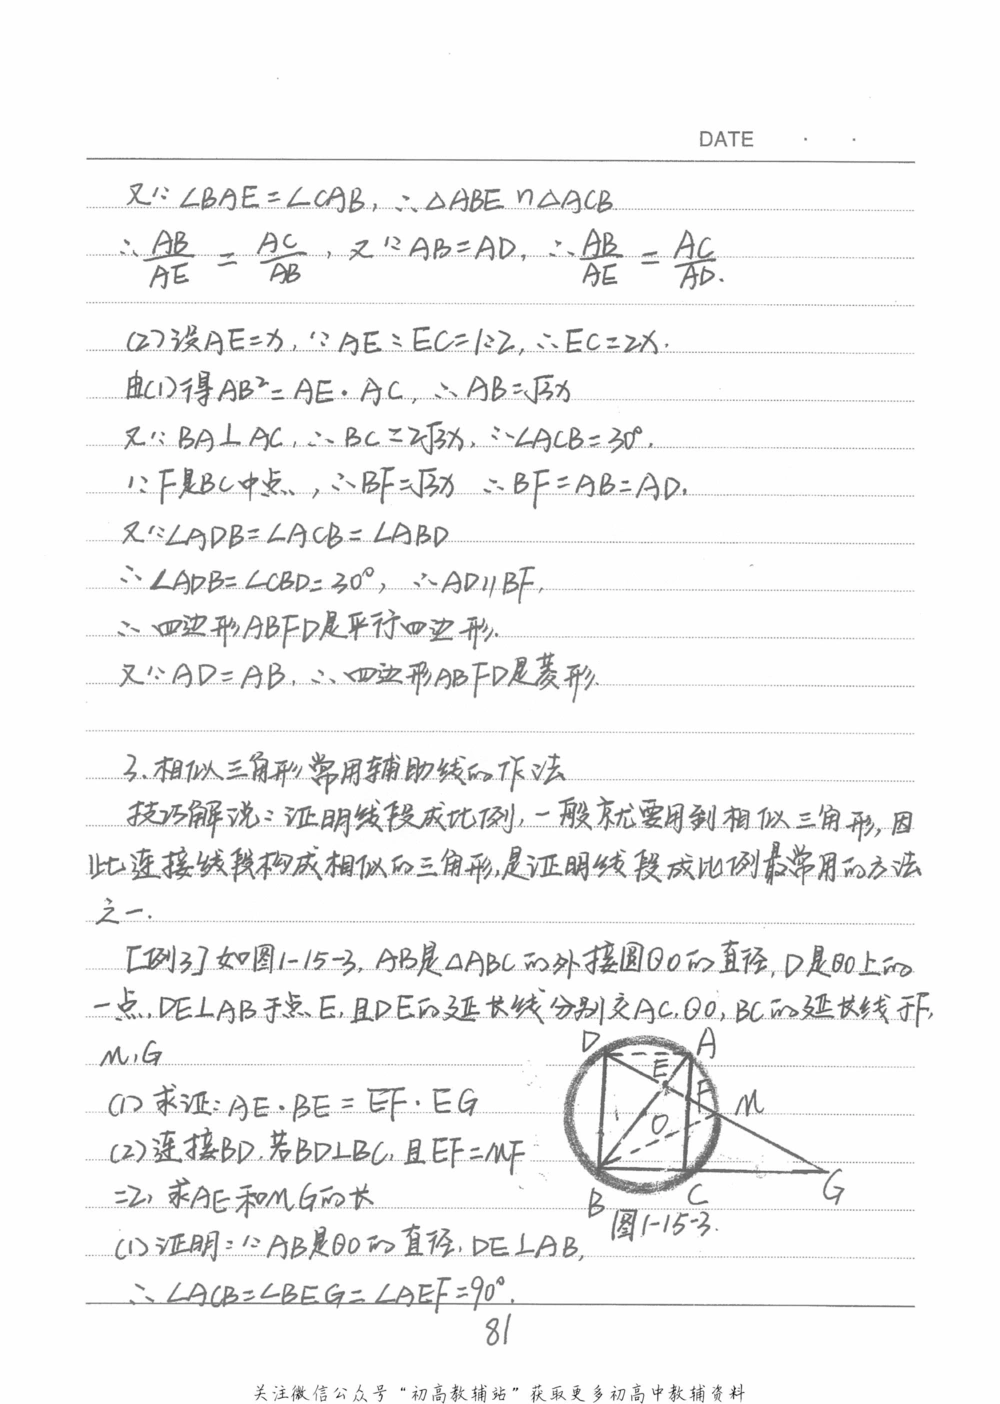 DATE · ·
又∵∠BAE=∠CAB, ∴△ABE∽△ACB
∴AB/AE = AC/AB, 又∵AB=AD, ∴AB/AE = AC/AD.
(2)设AE=x, ∵AE:EC=1:2, ∴EC=2x.
由(1)得AB²=AE·AC, ∴AB=√3x
又∵BA⊥AC, ∴BC=2√3x, ∴∠ACB=30°.
∵F是BC中点, ∴BF=√3x ∴BF=AB=AD.
又∵∠ADB=∠ACB=∠ABD
∴∠ADB=∠CBD=30°, ∴AD∥BF.
∴四边形ABFD是平行四边形.
又∵AD=AB, ∴四边形ABFD是菱形.
3.相似三角形常用辅助线的作法
技巧解说:证明线段成比例,一般就要用到相似三角形,因
此连接线段构成相似的三角形,是证明线段成比例最常用的方法
之一.
[例3]如图1-15-3, AB是△ABC的外接圆⊙O的直径, D是⊙O上的
一点, DE⊥AB于点E, 且DE的延长线分别交AC, ⊙O, BC的延长线于F,
M, G
(1)求证:AE·BE=EF·EG
(2)连接BD, 若BD⊥BC, 且EF=MF
=2, 求AE和MG的长
D A E F M O B C G
图1-15-3.
(1)证明:∵AB是⊙O的直径, DE⊥AB,
∴∠ACB=∠BEG=∠AEF=90°.
81
关注微信公众号“初高教辅站”获取更多初高中教辅资料